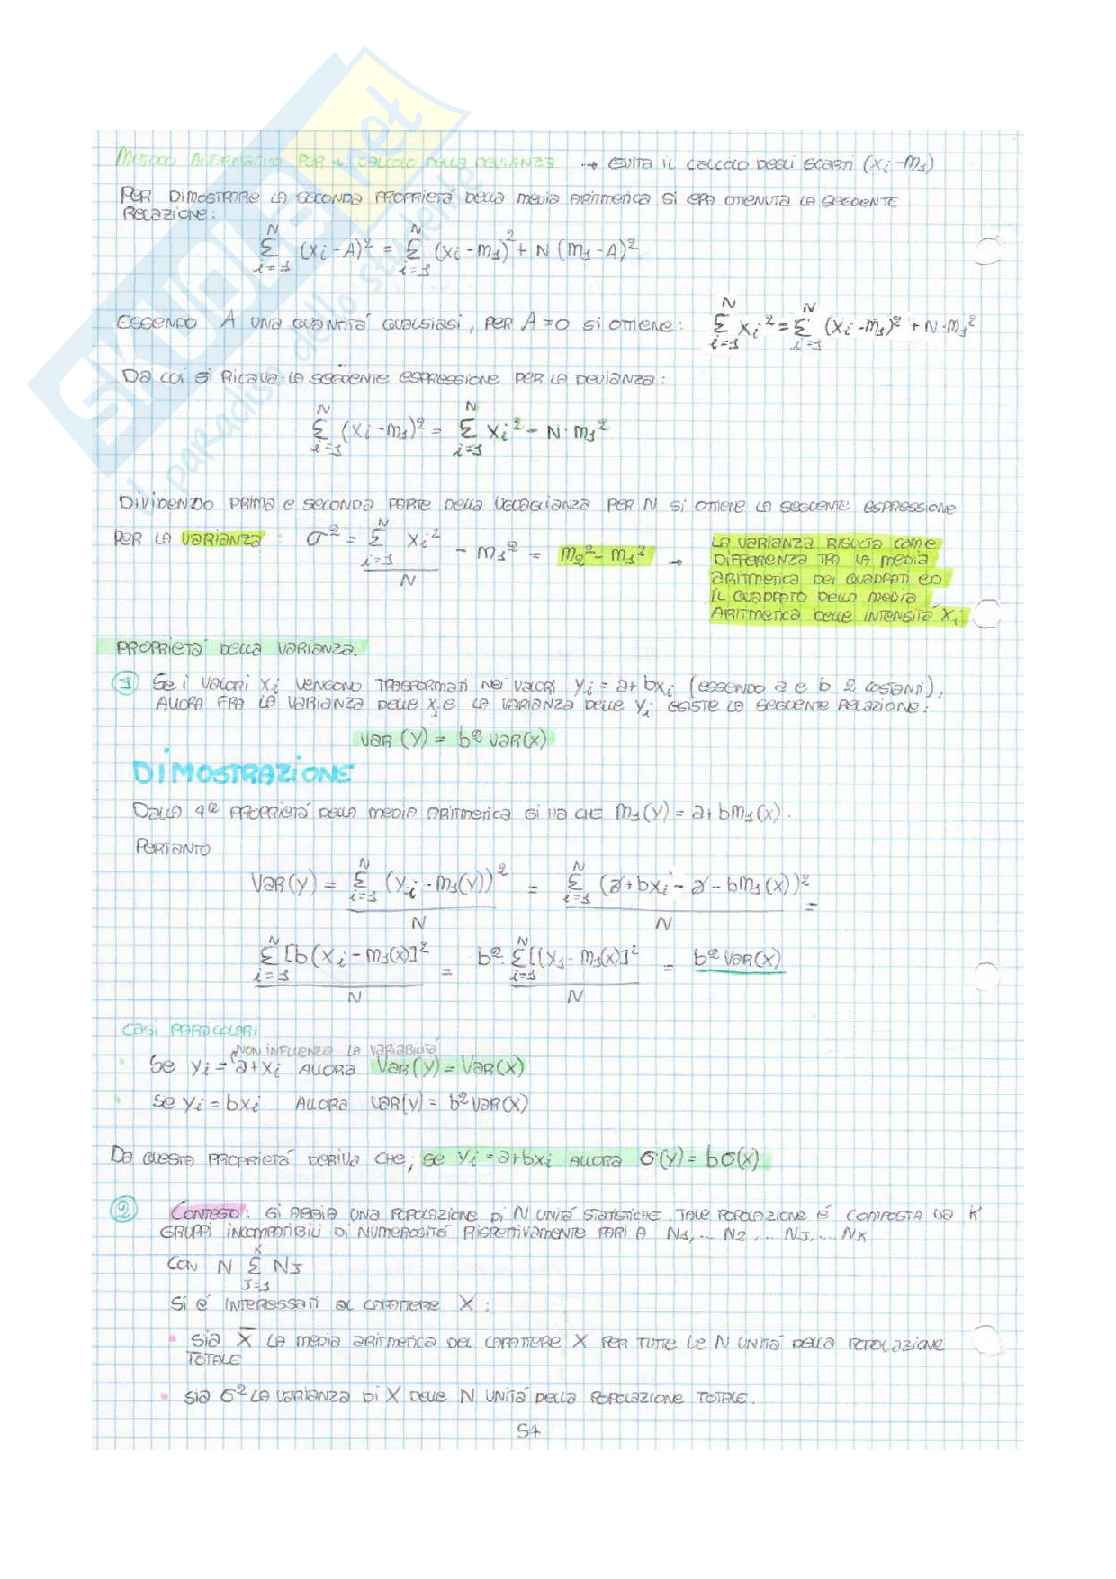 METODO ALTERNATIVO PER IL CALCOLO DELLA DEVIANZA → EVITA IL CALCOLO DEGLI SCARTI (xi - M1)
PER DIMOSTRARE LA SECONDA PROPRIETÀ DELLA MEDIA ARITMETICA SI ERA OTTENUTA LA SEGUENTE
RELAZIONE:
N Σ i=1 (xi - A)² = N Σ i=1 (xi - M1)² + N (M1 - A)²
ESSENDO A UNA QUANTITÀ QUALSIASI, PER A = 0 SI OTTIENE: N Σ i=1 xi² = N Σ i=1 (xi - M1)² + N · M1²
DA CUI SI RICAVA LA SEGUENTE ESPRESSIONE PER LA DEVIANZA:
N Σ i=1 (xi - M1)² = N Σ i=1 xi² - N · M1²
DIVIDENDO PRIMA E SECONDA PARTE DELLA UGUAGLIANZA PER N SI OTTIENE LA SEGUENTE ESPRESSIONE
PER LA VARIANZA: σ² = N Σ i=1 xi² / N - M1² = M2² - M1² →
LA VARIANZA RISULTA COME
DIFFERENZA TRA LA MEDIA
ARITMETICA DEI QUADRATI ED
IL QUADRATO DELLA MEDIA
ARITMETICA DELLE INTENSITÀ Xi
PROPRIETÀ DELLA VARIANZA.
1 SE I VALORI Xi VENGONO TRASFORMATI NEI VALORI yi = a + bxi (ESSENDO a E b 2 COSTANTI),
ALLORA FRA LA VARIANZA DELLE Xi E LA VARIANZA DELLE Yi ESISTE LA SEGUENTE RELAZIONE:
VAR (Y) = b² VAR(X)
DIMOSTRAZIONE
DALLA 4ª PROPRIETÀ DELLA MEDIA ARITMETICA SI HA CHE M1(Y) = a + bM1(X).
PERTANTO
VAR(Y) = N Σ i=1 (yi - M1(Y))² / N = N Σ i=1 (a + bxi - a - bM1(X))² / N =
N Σ i=1 [b(xi - M1(X)]² / N = b² N Σ i=1 [(xi - M1(X)]² / N = b² VAR(X)
CASI PARTICOLARI
NON INFLUENZA LA VARIABILITÀ
· SE yi = a + xi ALLORA VAR(Y) = VAR(X)
· SE yi = bxi ALLORA VAR(Y) = b² VAR(X)
DA QUESTA PROPRIETÀ DERIVA CHE, SE yi = a + bxi ALLORA σ(Y) = bσ(X)
2 CONTESTO: SI ABBIA UNA POPOLAZIONE DI N UNITÀ STATISTICHE TALE POPOLAZIONE È COMPOSTA DA K
GRUPPI INCOMPATIBILI DI NUMEROSITÀ RISPETTIVAMENTE PARI A N1,... N2,... NJ,... NK
CON N K Σ J=1 NJ
SI È INTERESSATI AL CARATTERE X:
• SIA X̄ LA MEDIA ARITMETICA DEL CARATTERE X PER TUTTE LE N UNITÀ DELLA POPOLAZIONE
TOTALE
• SIA σ² LA VARIANZA DI X DELLE N UNITÀ DELLA POPOLAZIONE TOTALE.
54
SKUOLA.net
il paradiso dello studente